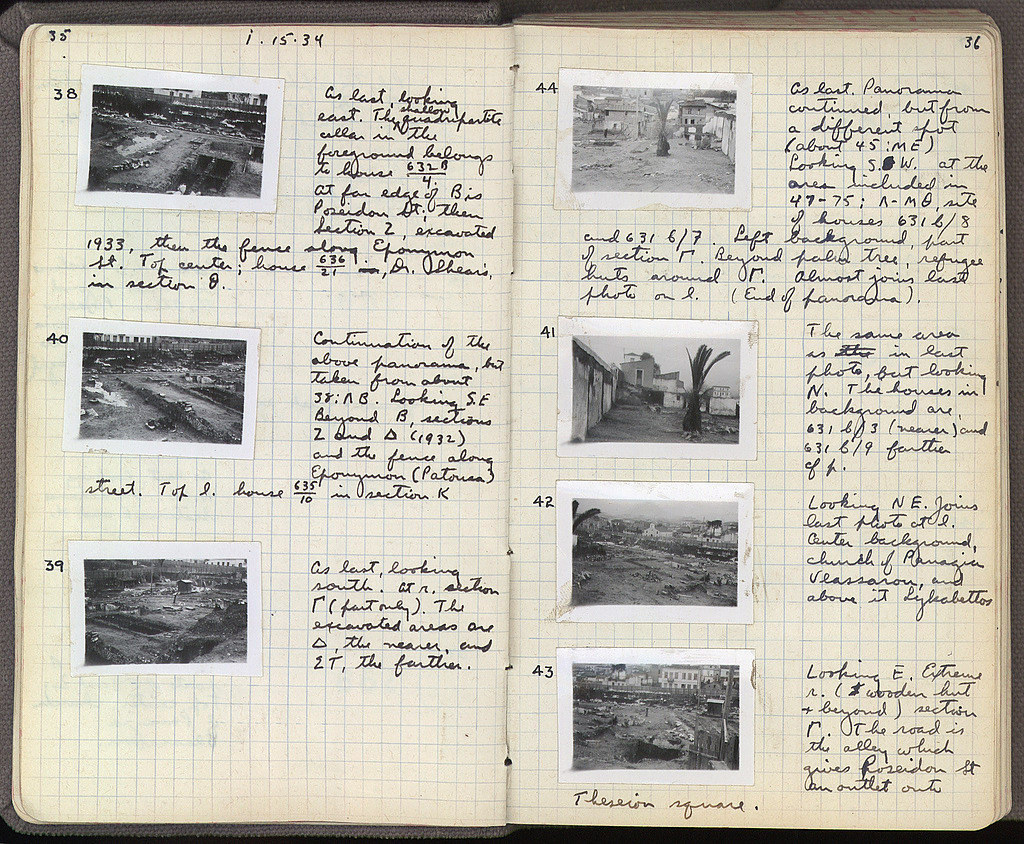 35
1.15.34
38
As last, looking
shallow
east. The quadripartite
cellar in the
foreground belongs
to house 632B/4.
At far edge of B is
Poseidon St. then
Section Z, excavated
1933, then the fence along Eponymon
St. Top center; house 636/21, Dr. Shear's,
in section Θ.
40
Continuation of the
above panorama, but
taken from about
38:ΛB. Looking S.E
Beyond B, sections
Z and Δ (1932)
and the fence along
Eponymon (Patousa)
street. Top l. house 635/10 in section K
39
As last, looking
south. At r. section
Γ (part only). The
excavated areas are
Δ, the nearer, and
ΣT, the farther.
36
44
As last. Panorama
continued, but from
a different spot
(about 45:ME)
Looking S.W. at the
area included in
47-75; Λ-MΘ, site
of houses 631 b/8
and 631 b/7. Left background, part
of section Γ. Beyond palm tree, refugee
huts around Γ. Almost joins last
photo on l. (End of panorama).
41
The same area
as in last
photo, but looking
N. The houses in
background are,
631 b/3 (nearer) and
631 b/9 farther
off.
42
Looking NE. Joins
last photo at l.
Center background,
church of Panagia
Vlassarou, and
above it Lykabettos
43
Looking E. Extreme
r. (wooden hut
+ beyond) section
Γ. The road is
the alley which
gives Poseidon St
an outlet onto
Theseion square.